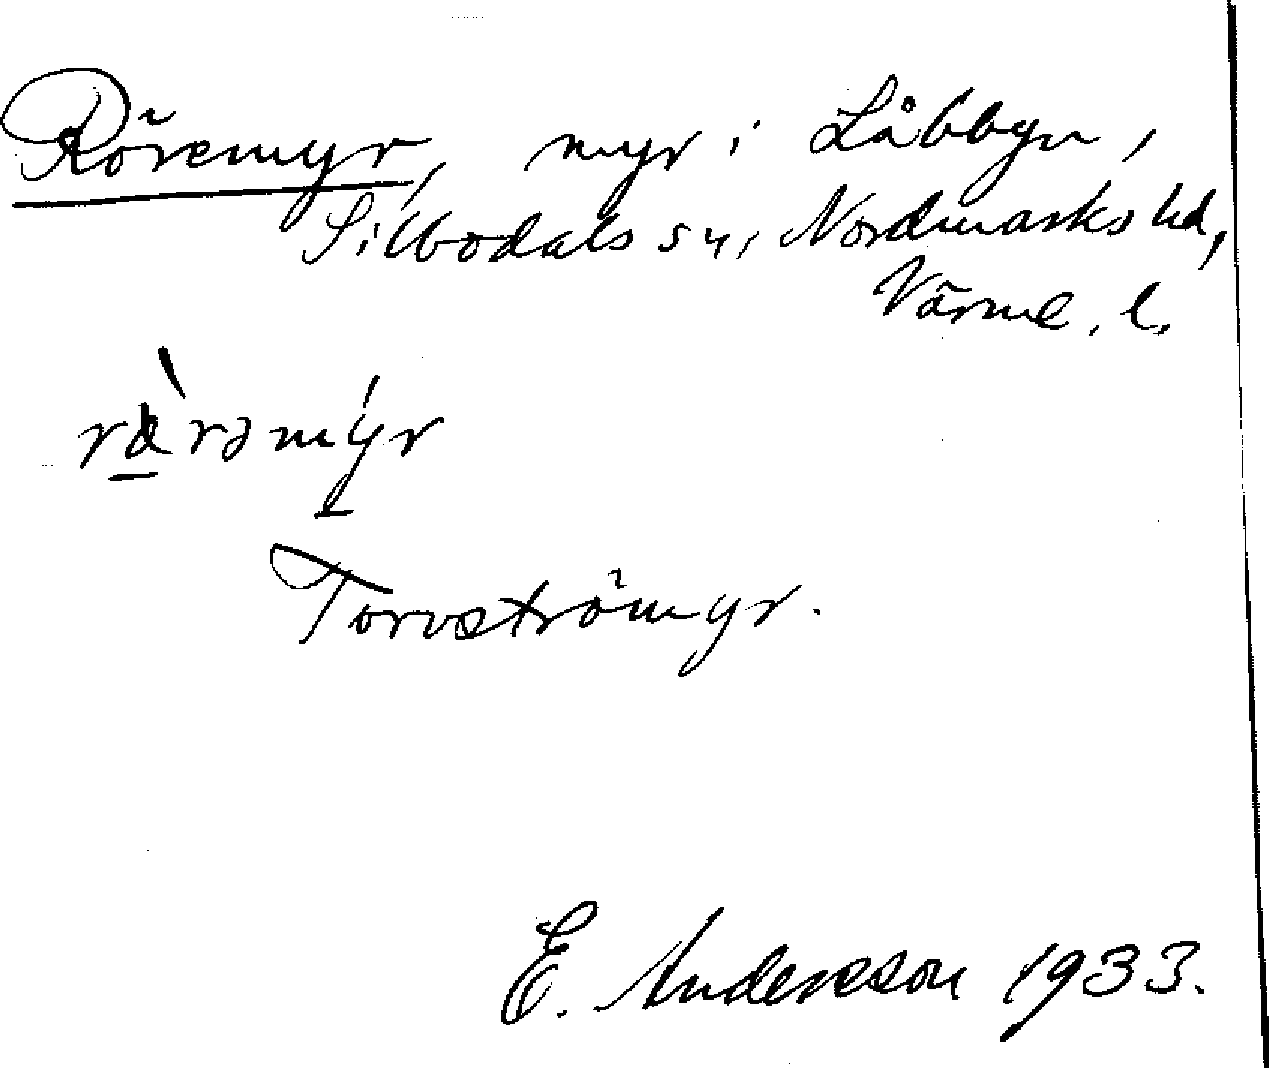 Röremyr, myr i Låbbyn,
Silbodals sn, Nordmarks hd,
Värml. l.
rö̀rəmýr
Torvströmyr.
E. Andersson 1933.